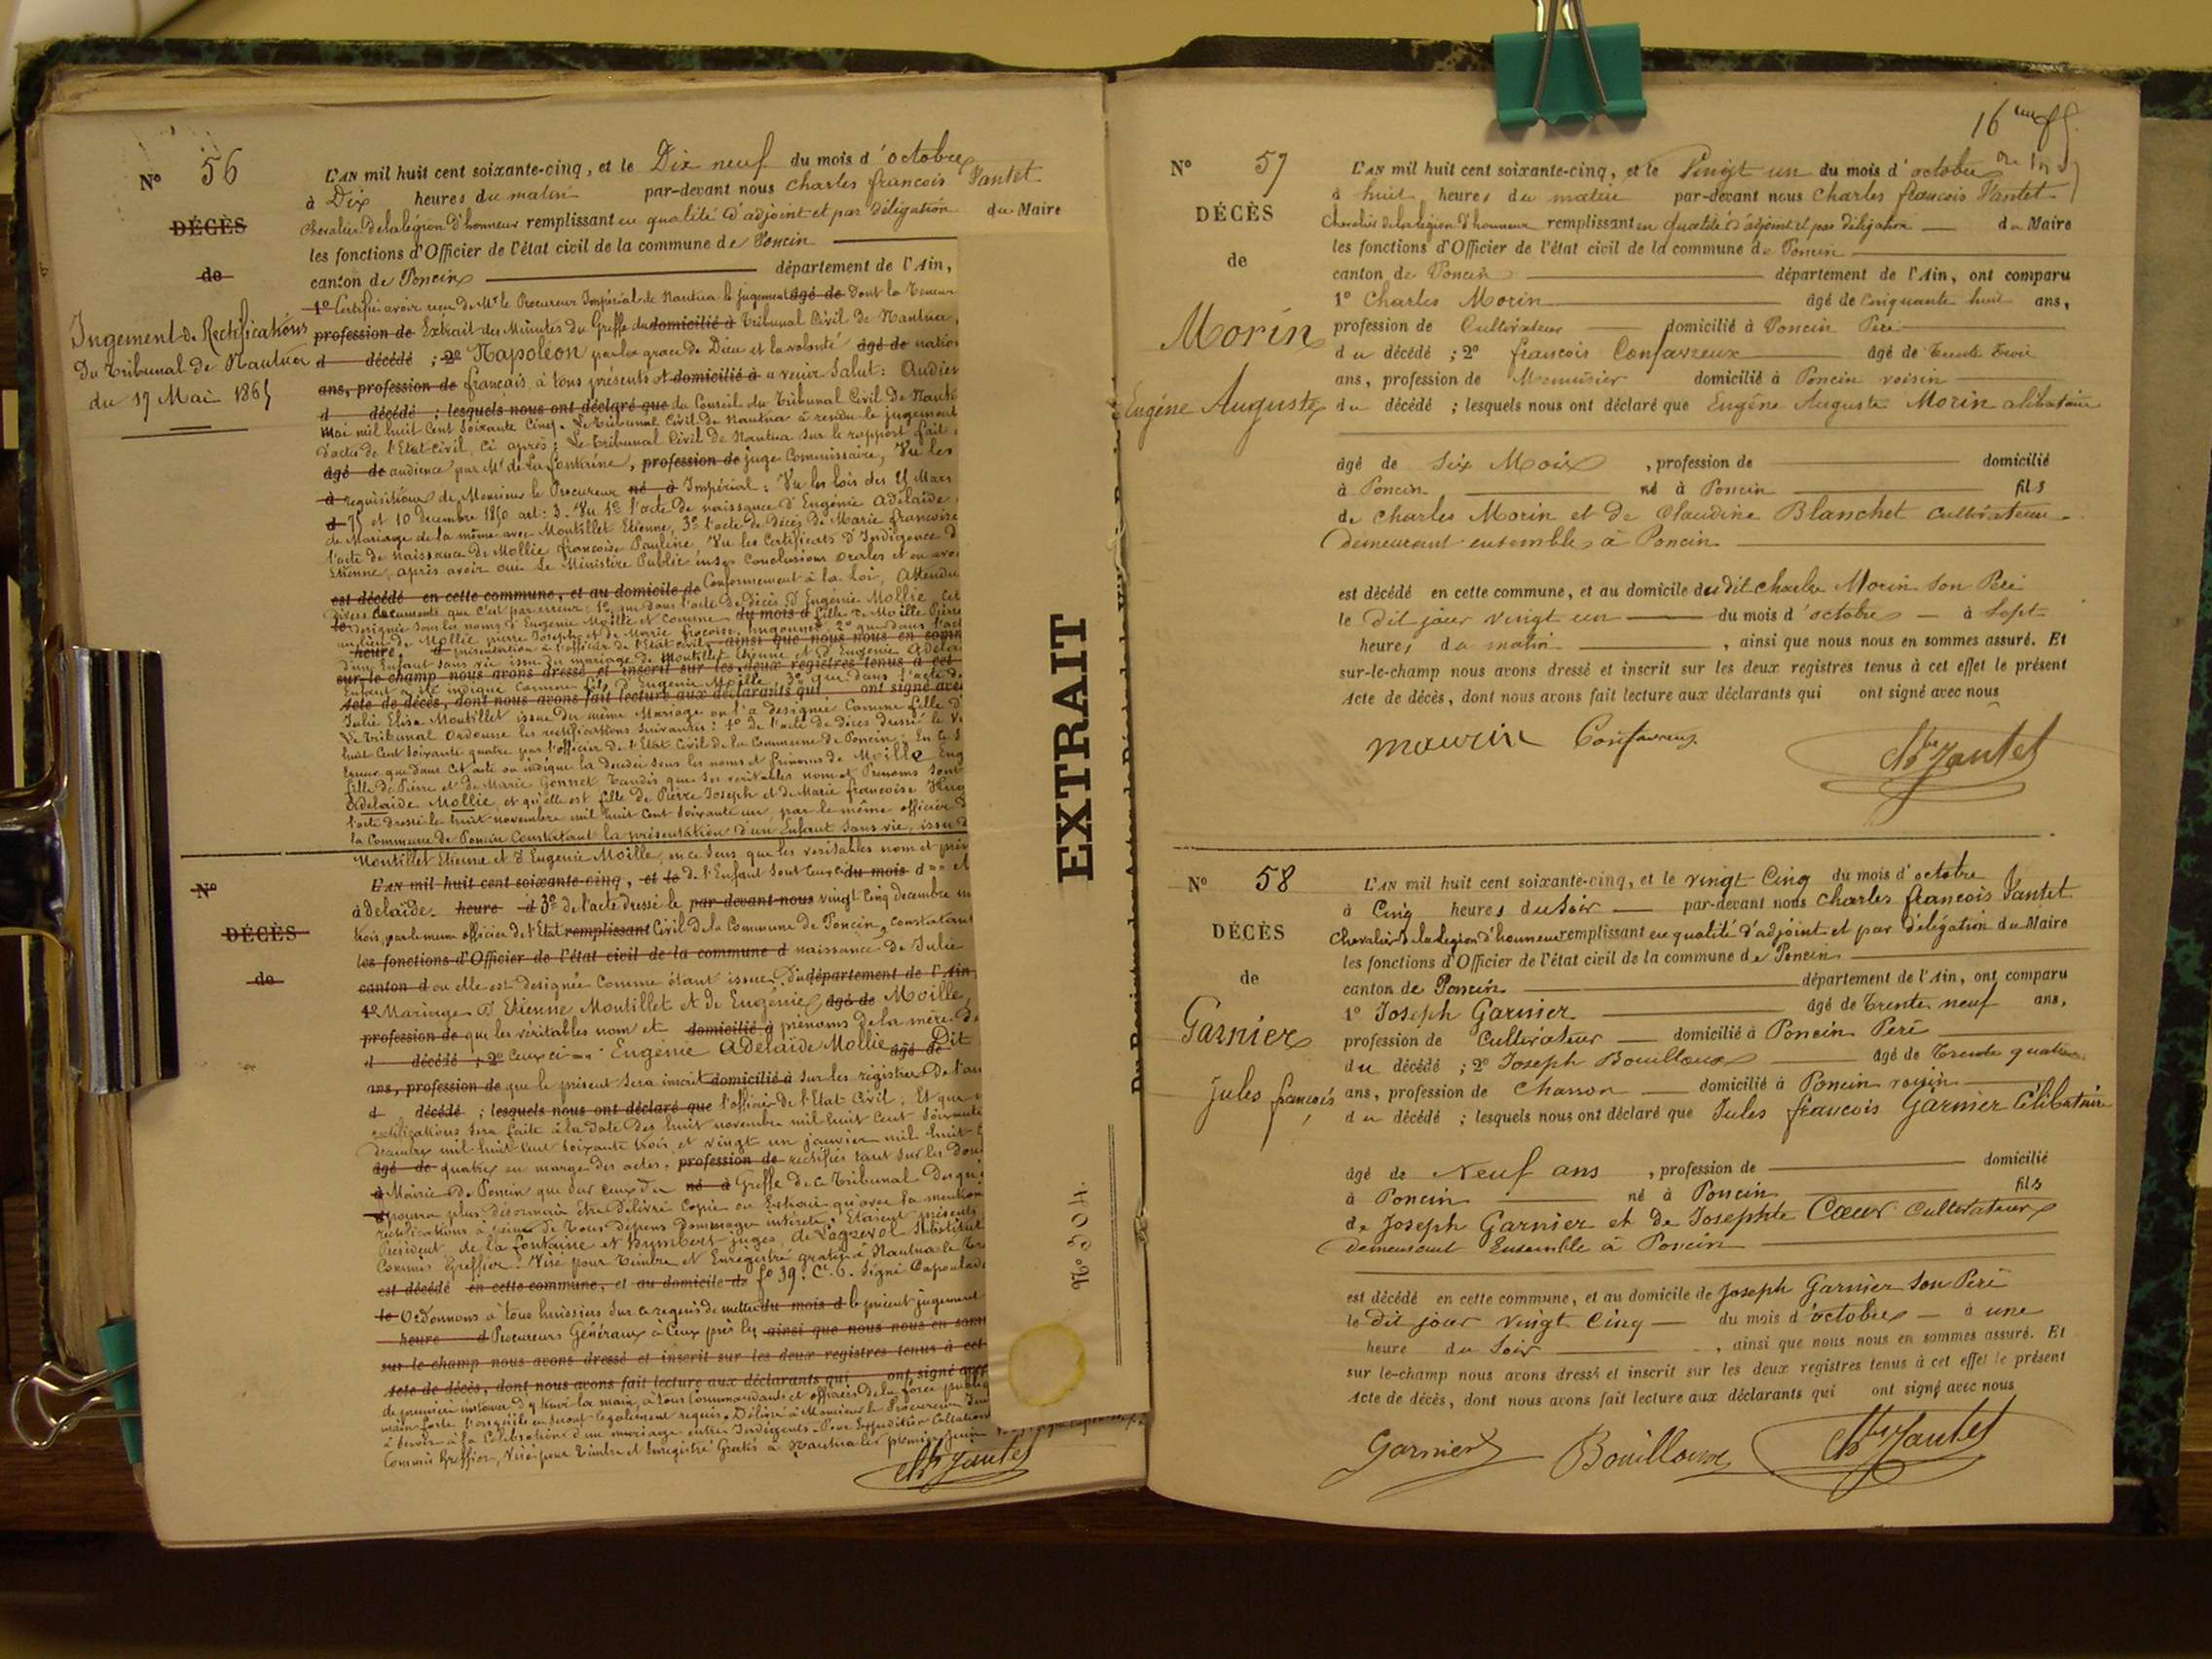 N° 56
DÉCÈS
de
Jugement de Rectifications
du tribunal de Nantua
du 17 Mai 1865
L'AN mil huit cent soixante-cinq, et le Dix neuf du mois d'octobre
à Dix heures du matin par-devant nous Charles francois Vantet
Chevalier de la légion d'honneur remplissant en qualité d'adjoint et par délégation du Maire
les fonctions d'Officier de l'état civil de la commune de Poncin
canton de Poncin département de l'Ain,
1° Certifie avoir reçu de Mr le Procureur Impérial de Nantua le jugement âgé de Dont la Teneur
profession de Extrait des Minutes du Greffe du domicilié à Tribunal Civil de Nantua,
d décédé ; 2° Napoléon par la grace de Dieu et la volonté âgé de natio
ans, profession de français, à tous présents et domicilié à a venir Salut : Audien
d décédé ; lesquels nous ont déclaré que du Conseil du Tribunal Civil de Nantu
mai mil huit Cent Soixante Cinq. Le Tribunal Civil de Nantua à rendu le jugement
d'actes de l'Etat-Civil, Ci après : Le Tribunal Civil de Nantua sur le rapport fait
âgé de audience par Mr de La fontaine, profession de juge Commissaire, Vu les
à requisitions de Monsieur le Procureur né à Impérial : Vu les lois des 25 Mars
et 10 decembre 1850 art : 3. Vu 1° l'acte de naissance d'Eugénie Adélaïde
de Mariage de la même avec Montillet Etienne, 3° l'acte de Décès de Marie francoise
l'acte de naissance de Mollie francoise Pauline, Vu les Certificats d'Indigence
Etienne, après avoir oui Le Ministère Public en ses Conclusions orales et en avoi
est décédé en cette commune, et au domicile de Conformément à la Loi, Attendu
divers documents que C'est par erreur : 1° que dans l'acte de décès d'Eugénie Mollie
sur-le-champ nous avons dressé et inscrit sur les deux registres tenus à cet
Acte de décès, dont nous avons fait lecture aux déclarants qui ont signé avec
Julie Elisa Montillet issue du même Mariage on l'a désignée Comme fille
Le Tribunal Ordonne les rectifications Suivantes : 1° de l'acte de décès dressé le
huit Cent Soixante quatre par l'officier de l'Etat Civil de la Commune de Poncin, En ce S
Erreur que dans Cet acte on indique la décédée Sous les noms et Prénoms de Moille Eug
fille de Pierre et de Marie Gonnet Tandis que Ses veritables nom et Prenoms Sont
Adelaïde Mollie, et qu'elle est fille de Pierre Joseph et de Marie francoise Hug
l'acte dressé le huit novembre mil huit Cent Soixante un, par le même officier
la Commune de Poncin Constatant la présentation d'un Enfant Sans vie, issu
Montillet Etienne et d'Eugenie Moille, en ce Sens que les veritables nom et prén
N°
DÉCÈS
de
L'AN mil huit cent soixante-cinq, et le de l'Enfant Sont Ceux ci du mois d
adelaïde. heure d 3° de l'acte dressé le par-devant nous vingt Cinq decembre
trois, par le meme officier de l'Etat remplissant Civil de la Commune de Poncin, Constatant
les fonctions d'Officier de l'état civil de la commune d naissance de Julie
canton d ou elle est designée Comme étant issue du département de l'Ain
1° Mariage d'Etienne Montillet et de Eugénie âgé de Moille,
profession de que les véritables nom et domicilié à prénoms de la mère
d décédé ; 2° Ceux ci Eugénie Adélaïde Mollie âgé de Dit
ans, profession de que le présent Sera inscrit domicilié à sur les registres de l'an
d décédé ; lesquels nous ont déclaré que l'officier de l'Etat-Civil ; Et que
rectifications Sera faite à la Date des huit novembre mil huit Cent Soixante
decembre mil huit Cent soixante trois et vingt un janvier mil huit
âgé de quatre en marge des actes, profession de rectifiés tant sur les
à Mairie de Poncin que sur ceux du né à Greffe de ce Tribunal
pourra plus désormais être délivré Copie ou Extrait qu'avec la mention
rectifications à peine de Tous Dépens Dommages intérêts ; Etaient présents
President, de la fontaine et Humbert juges, de Lagrevol Substitut
Commis Greffier. Visé pour Timbre et Enregistré gratis à Nantua le
est décédé en cette commune, et au domicile de f° 39. Ce 6. Signé
le Ordonnons à tous huissiers sur ce requis de mettre du mois d le présent jugement
heure d Procureurs Généraux à Ceux près les ainsi que nous nous en somm
sur-le-champ nous avons dressé et inscrit sur les deux registres tenus à cet
Acte de décès, dont nous avons fait lecture aux déclarants qui ont signé avec
de première instance d'y tenir la main, à tous Commandants et officiers de la force publiq
main forte lorsqu'ils en Seront légalement requis. Délivré à Monsieur le Procureur
à Servir à la Célébration d'un mariage entre Indigents. Pour Expédition Collation
Commis Greffier, Visé pour Timbre et Enregistré Gratis à Nantua le premier juin
Chs Vantet
EXTRAIT
N° 504.
N° 57
DÉCÈS
de
Morin
Eugéne Auguste
L'AN mil huit cent soixante-cinq, et le Vingt un du mois d'octobre
à huit heures du matin par-devant nous Charles francois Vantet
Chevalier de la légion d'honneur remplissant en qualité d'adjoint et par délégation du Maire
les fonctions d'Officier de l'état civil de la commune de Poncin
canton de Poncin département de l'Ain, ont comparu
1° Charles Morin âgé de Cinquante huit ans,
profession de Cultivateur domicilié à Poncin Peré
du décédé ; 2° francois Confavreux âgé de trente trois
ans, profession de Menuisier domicilié à Poncin voisin
du décédé ; lesquels nous ont déclaré que Eugéne Auguste Morin célibataire
âgé de Six Mois , profession de domicilié
à Poncin né à Poncin fils
de Charles Morin et de Claudine Blanchet Cultivateurs
demeurant ensemble à Poncin
est décédé en cette commune, et au domicile du dit Charles Morin Son Peré
le dit jour vingt un du mois d'octobre à Sept
heures du matin , ainsi que nous nous en sommes assuré. Et
sur-le-champ nous avons dressé et inscrit sur les deux registres tenus à cet effet le présent
Acte de décès, dont nous avons fait lecture aux déclarants qui ont signé avec nous
maurin Confavreux
Chs Vantet
N° 58
DÉCÈS
de
Garnier
Jules françois
L'AN mil huit cent soixante-cinq, et le vingt Cinq du mois d'octobre
à Cinq heures du Soir par-devant nous Charles francois Vantet
Chevalier de la Légion d'honneur remplissant en qualité d'adjoint et par délégation du Maire
les fonctions d'Officier de l'état civil de la commune de Poncin
canton de Poncin département de l'Ain, ont comparu
1° Joseph Garnier âgé de Trente neuf ans,
profession de Cultivateur domicilié à Poncin Peré
du décédé ; 2° Joseph Bouilloux âgé de Trente quatre
ans, profession de Charron domicilié à Poncin voisin
du décédé ; lesquels nous ont déclaré que Jules francois Garnier Célibataire
âgé de Neuf ans , profession de domicilié
à Poncin né à Poncin fils
de Joseph Garnier et de Josephte Cœur Cultivateurs
demeurant Ensemble à Poncin
est décédé en cette commune, et au domicile de Joseph Garnier Son Peré
le dit jour vingt Cinq du mois d'octobre à une
heure du Soir , ainsi que nous nous en sommes assuré. Et
sur le-champ nous avons dressé et inscrit sur les deux registres tenus à cet effet le présent
Acte de décès, dont nous avons fait lecture aux déclarants qui ont signé avec nous
Garnier Bouilloux Chs Vantet